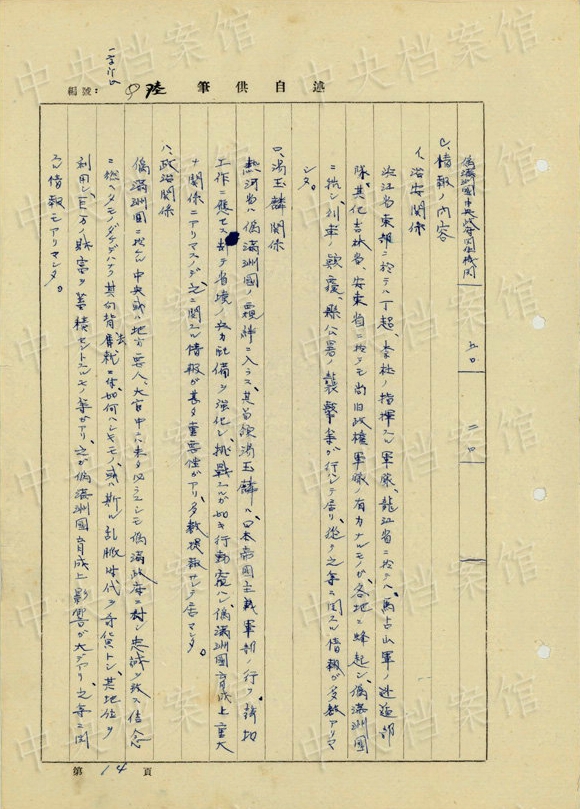 述自供筆
編號:
偽満洲國中央政府関係機関
五〇
二〇
ᄂ、情報ノ内容
イ、治安関係
浜江省東部ニ於テハ丁超、李杜ノ指揮スル軍隊、龍江省ニ於テハ馬占山軍ノ
隊、其他吉林省、安東省ニ於テモ尚旧政権軍隊ノ有力ナルモノガ、各地ニ蜂起シ、偽満洲國
ニ抗シ、列車ノ顛覆、縣公署ノ襲撃等ガ行ハレテ居リ、從テ之等ニ関スル情報ガ多数アリマ
シタ。
ロ、湯玉麟関係
熱河省ハ偽満洲國ノ ニ入ラズ、其首領湯玉麟ハ、日本帝國主義軍部ノ行フ
工作ニ應セズ、却テ省境ノ兵力配備ヲ強化シ、挑戦スルガ如キ行動ニ、偽満洲國育成上重大
ナ関係ニアリマスノデ、之ニ関スル情報ガ甚タ重要性ガアリ、多数提報サレテ居マシタ。
ハ、政治関係
偽満洲國ニ於ケル中央或ハ地方要人、大官中ニハ未タ必ラズシモ偽満政府ニ対シ忠誠ヲ致ス信念
ニ燃ヘタモノダケデハナク其向背去就ニ、如何ハシキモノ、或ハ斯ル乱脈時代ヲ奇貨トシ、其地位ヲ
利用シ、巨万ノ財富ヲ蓄積セントスルモノ等ガアリ、之ガ偽満洲國育成上影響ガ大デアリ、之等ニ関
スル情報モアリマシタ。
第 14 頁
中央档案馆